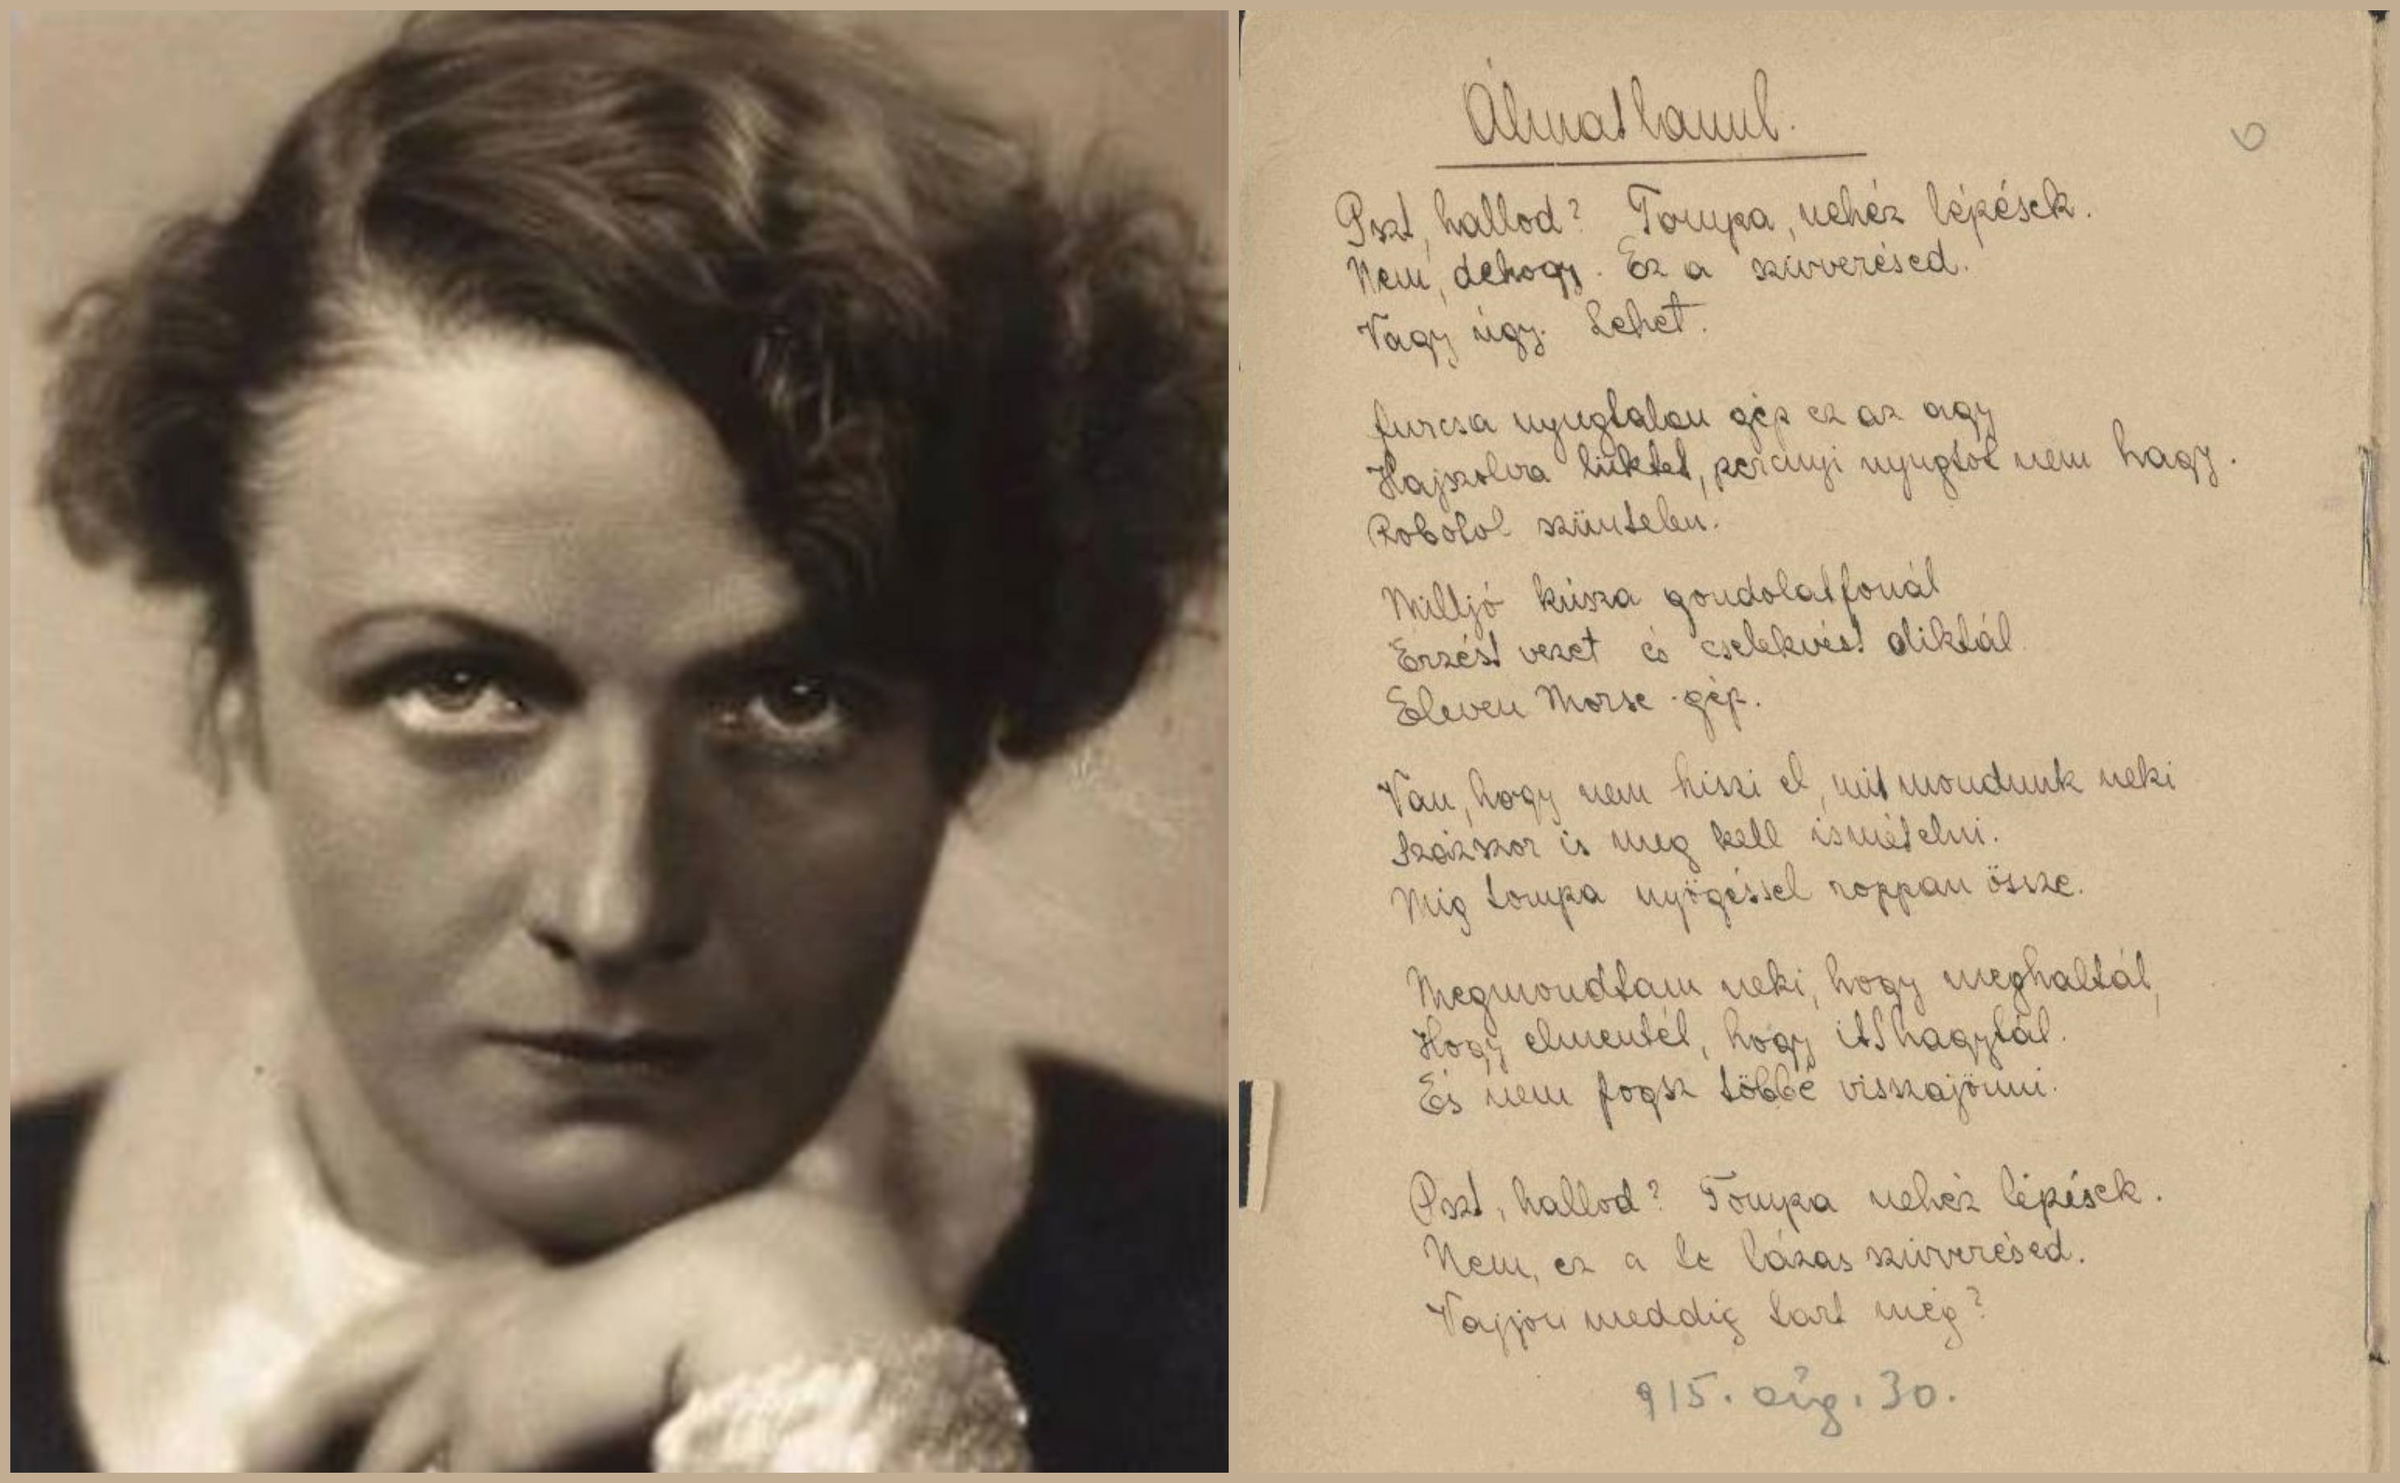 Álmatlanul.
Pszt, hallod? Tompa, nehéz lépések.
Nem, dehogy. Ez a szivverésed.
Vagy úgy. Lehet.
furcsa nyugtalan gép ez az agy
Hajszolva lüktet, percnyi nyugtot nem hagy.
Robotol szüntelen.
Milljó kúsza gondolatfonál
Érzést vezet és cselekvést diktál
Eleven Morse-gép.
Van, hogy nem hiszi el, mit mondunk neki
Százszor is meg kell ismételni.
Mig tompa nyögéssel roppan össze.
Megmondtam neki, hogy meghaltál,
Hogy elmentél, hogy itthagytál.
És nem fogsz többé visszajönni.
Pszt, hallod? Tompa nehéz lépések.
Nem, ez a te lázas szivverésed.
Vajjon meddig tart még?
915. aug. 30.